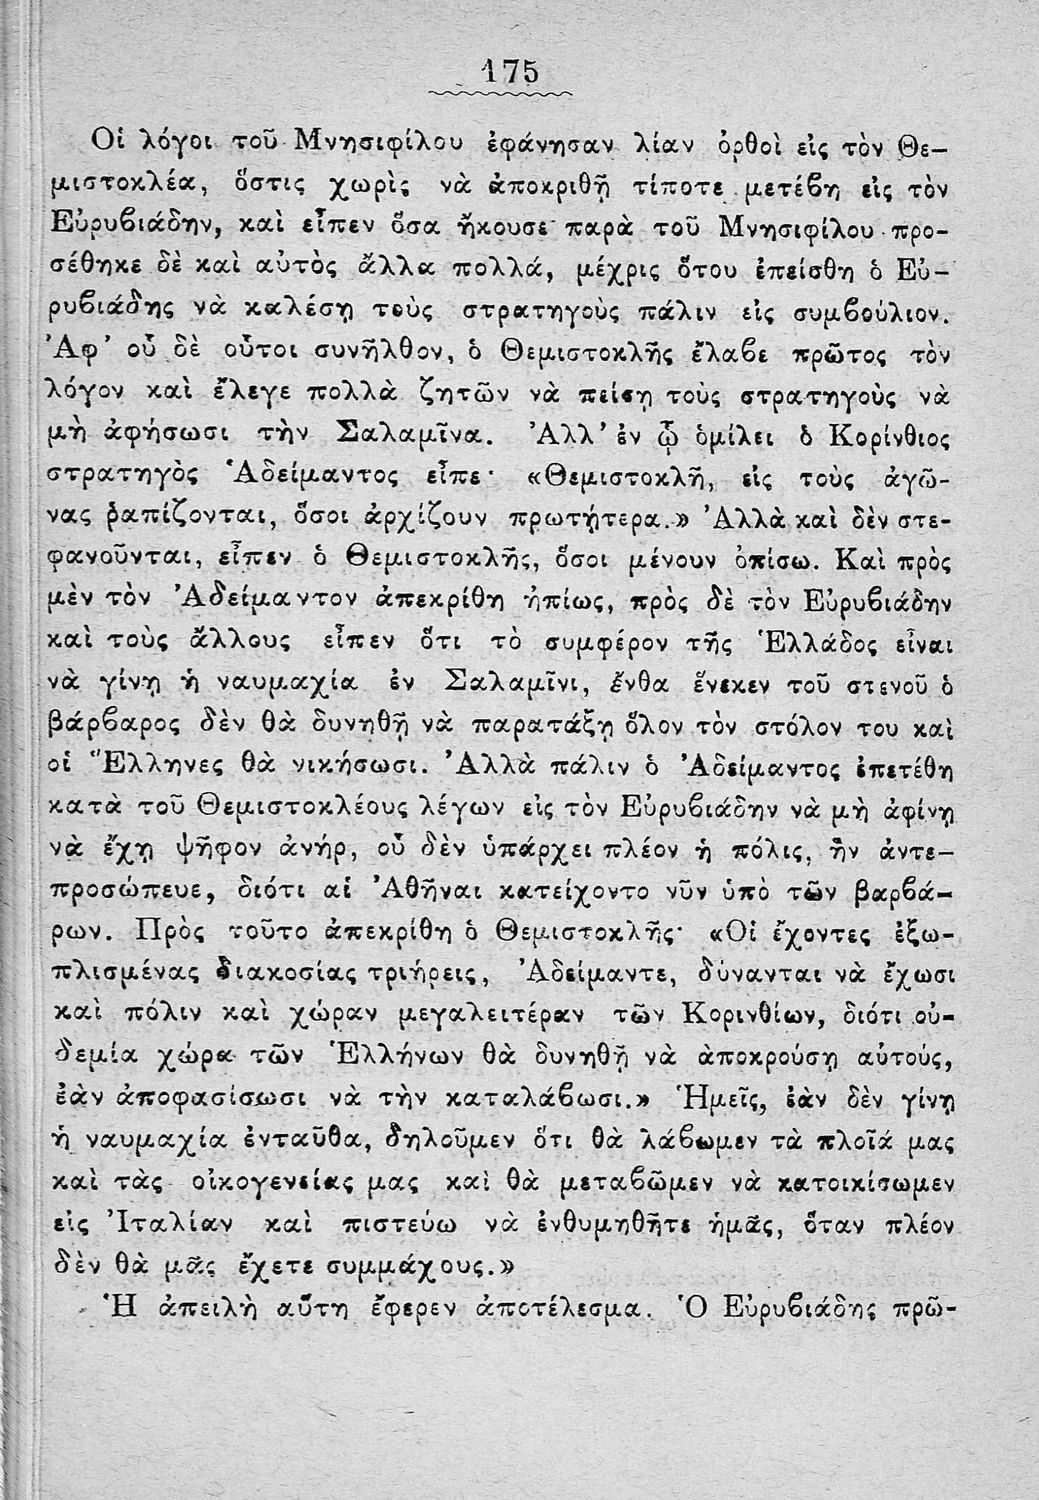 175
Οἱ λόγοι τοῦ Μνησιφίλου ἐφάνησαν λίαν ὀρθοὶ εἰς τὸν Θε-
μιστοκλέα, ὅστις χωρὶς νὰ ἀποκριθῇ τίποτε μετέβη εἰς τὸν
Εὐρυβιάδην, καὶ εἶπεν ὅσα ἤκουσε παρὰ τοῦ Μνησιφίλου· προ-
σέθηκε δὲ καὶ αὐτὸς ἄλλα πολλά, μέχρις ὅτου ἐπείσθη ὁ Εὐ-
ρυβιάδης νὰ καλέσῃ τοὺς στρατηγοὺς πάλιν εἰς συμβούλιον.
Ἀφ’ οὗ δὲ οὗτοι συνῆλθον, ὁ Θεμιστοκλῆς ἔλαβε πρῶτος τὸν
λόγον καὶ ἔλεγε πολλὰ ζητῶν νὰ πείσῃ τοὺς στρατηγοὺς νὰ
μὴ ἀφήσωσι τὴν Σαλαμῖνα. Ἀλλ’ ἐν ᾧ ὁμίλει ὁ Κορίνθιος
στρατηγὸς Ἀδείμαντος εἶπε· «Θεμιστοκλῆ, εἰς τοὺς ἀγῶ-
νας ῥαπίζονται, ὅσοι ἀρχίζουν πρωτήτερα.» Ἀλλὰ καὶ δὲν στε-
φανοῦνται, εἶπεν ὁ Θεμιστοκλῆς, ὅσοι μένουν ὀπίσω. Καὶ πρὸς
μὲν τὸν Ἀδείμαντον ἀπεκρίθη ἠπίως, πρὸς δὲ τὸν Εὐρυβιάδην
καὶ τοὺς ἄλλους εἶπεν ὅτι τὸ συμφέρον τῆς Ἑλλάδος εἶναι
νὰ γίνῃ ἡ ναυμαχία ἐν Σαλαμῖνι, ἔνθα ἕνεκεν τοῦ στενοῦ ὁ
βάρβαρος δὲν θὰ δυνηθῇ νὰ παρατάξῃ ὅλον τὸν στόλον του καὶ
οἱ Ἕλληνες θὰ νικήσωσι. Ἀλλὰ πάλιν ὁ Ἀδείμαντος ἐπετέθη
κατὰ τοῦ Θεμιστοκλέους λέγων εἰς τὸν Εὐρυβιάδην νὰ μὴ ἀφίνῃ
νὰ ἔχῃ ψῆφον ἀνήρ, οὗ δὲν ὑπάρχει πλέον ἡ πόλις, ἣν ἀντε-
προσώπευε, διότι αἱ Ἀθῆναι κατείχοντο νῦν ὑπὸ τῶν βαρβά-
ρων. Πρὸς τοῦτο ἀπεκρίθη ὁ Θεμιστοκλῆς· «Οἱ ἔχοντες ἐξω-
πλισμένας διακοσίας τριήρεις, Ἀδείμαντε, δύνανται νὰ ἔχωσι
καὶ πόλιν καὶ χώραν μεγαλειτέραν τῶν Κορινθίων, διότι οὐ-
δεμία χώρα τῶν Ἑλλήνων θὰ δυνηθῇ νὰ ἀποκρούσῃ αὐτούς,
ἐὰν ἀποφασίσωσι νὰ τὴν καταλάβωσι.» Ἡμεῖς, ἐὰν δὲν γίνῃ
ἡ ναυμαχία ἐνταῦθα, δηλοῦμεν ὅτι θὰ λάβωμεν τὰ πλοῖά μας
καὶ τὰς οἰκογενείας μας καὶ θὰ μεταβῶμεν νὰ κατοικίσωμεν
εἰς Ἰταλίαν καὶ πιστεύω νὰ ἐνθυμηθῆτε ἡμᾶς, ὅταν πλέον
δὲν θὰ μᾶς ἔχετε συμμάχους.»
Ἡ ἀπειλὴ αὕτη ἔφερεν ἀποτέλεσμα. Ὁ Εὐρυβιάδης πρῶ-